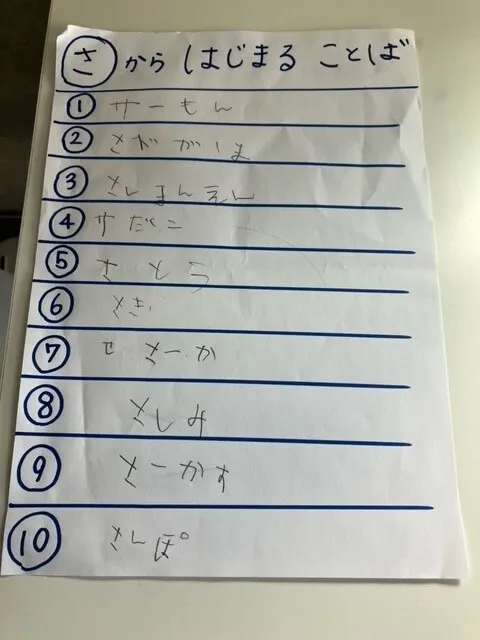 さ から はじまる ことば
① サーもん
② さががしま
③ さんまんえん
④ サだこ
⑤ さとう
⑥ さき
⑦ せ さーか
⑧ さしみ
⑨ さーかす
⑩ さんぽ